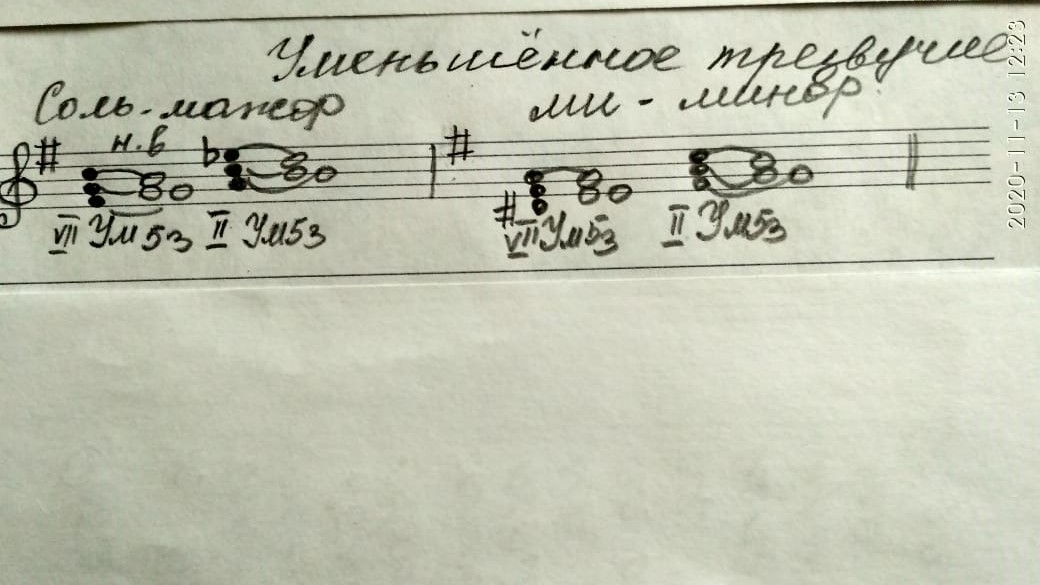 Уменьшённое трезвучие
Соль-мажор ми - минор.
н.в
VII Ум53 II Ум53 VII Ум53 II Ум53
2020-11-13 12:23